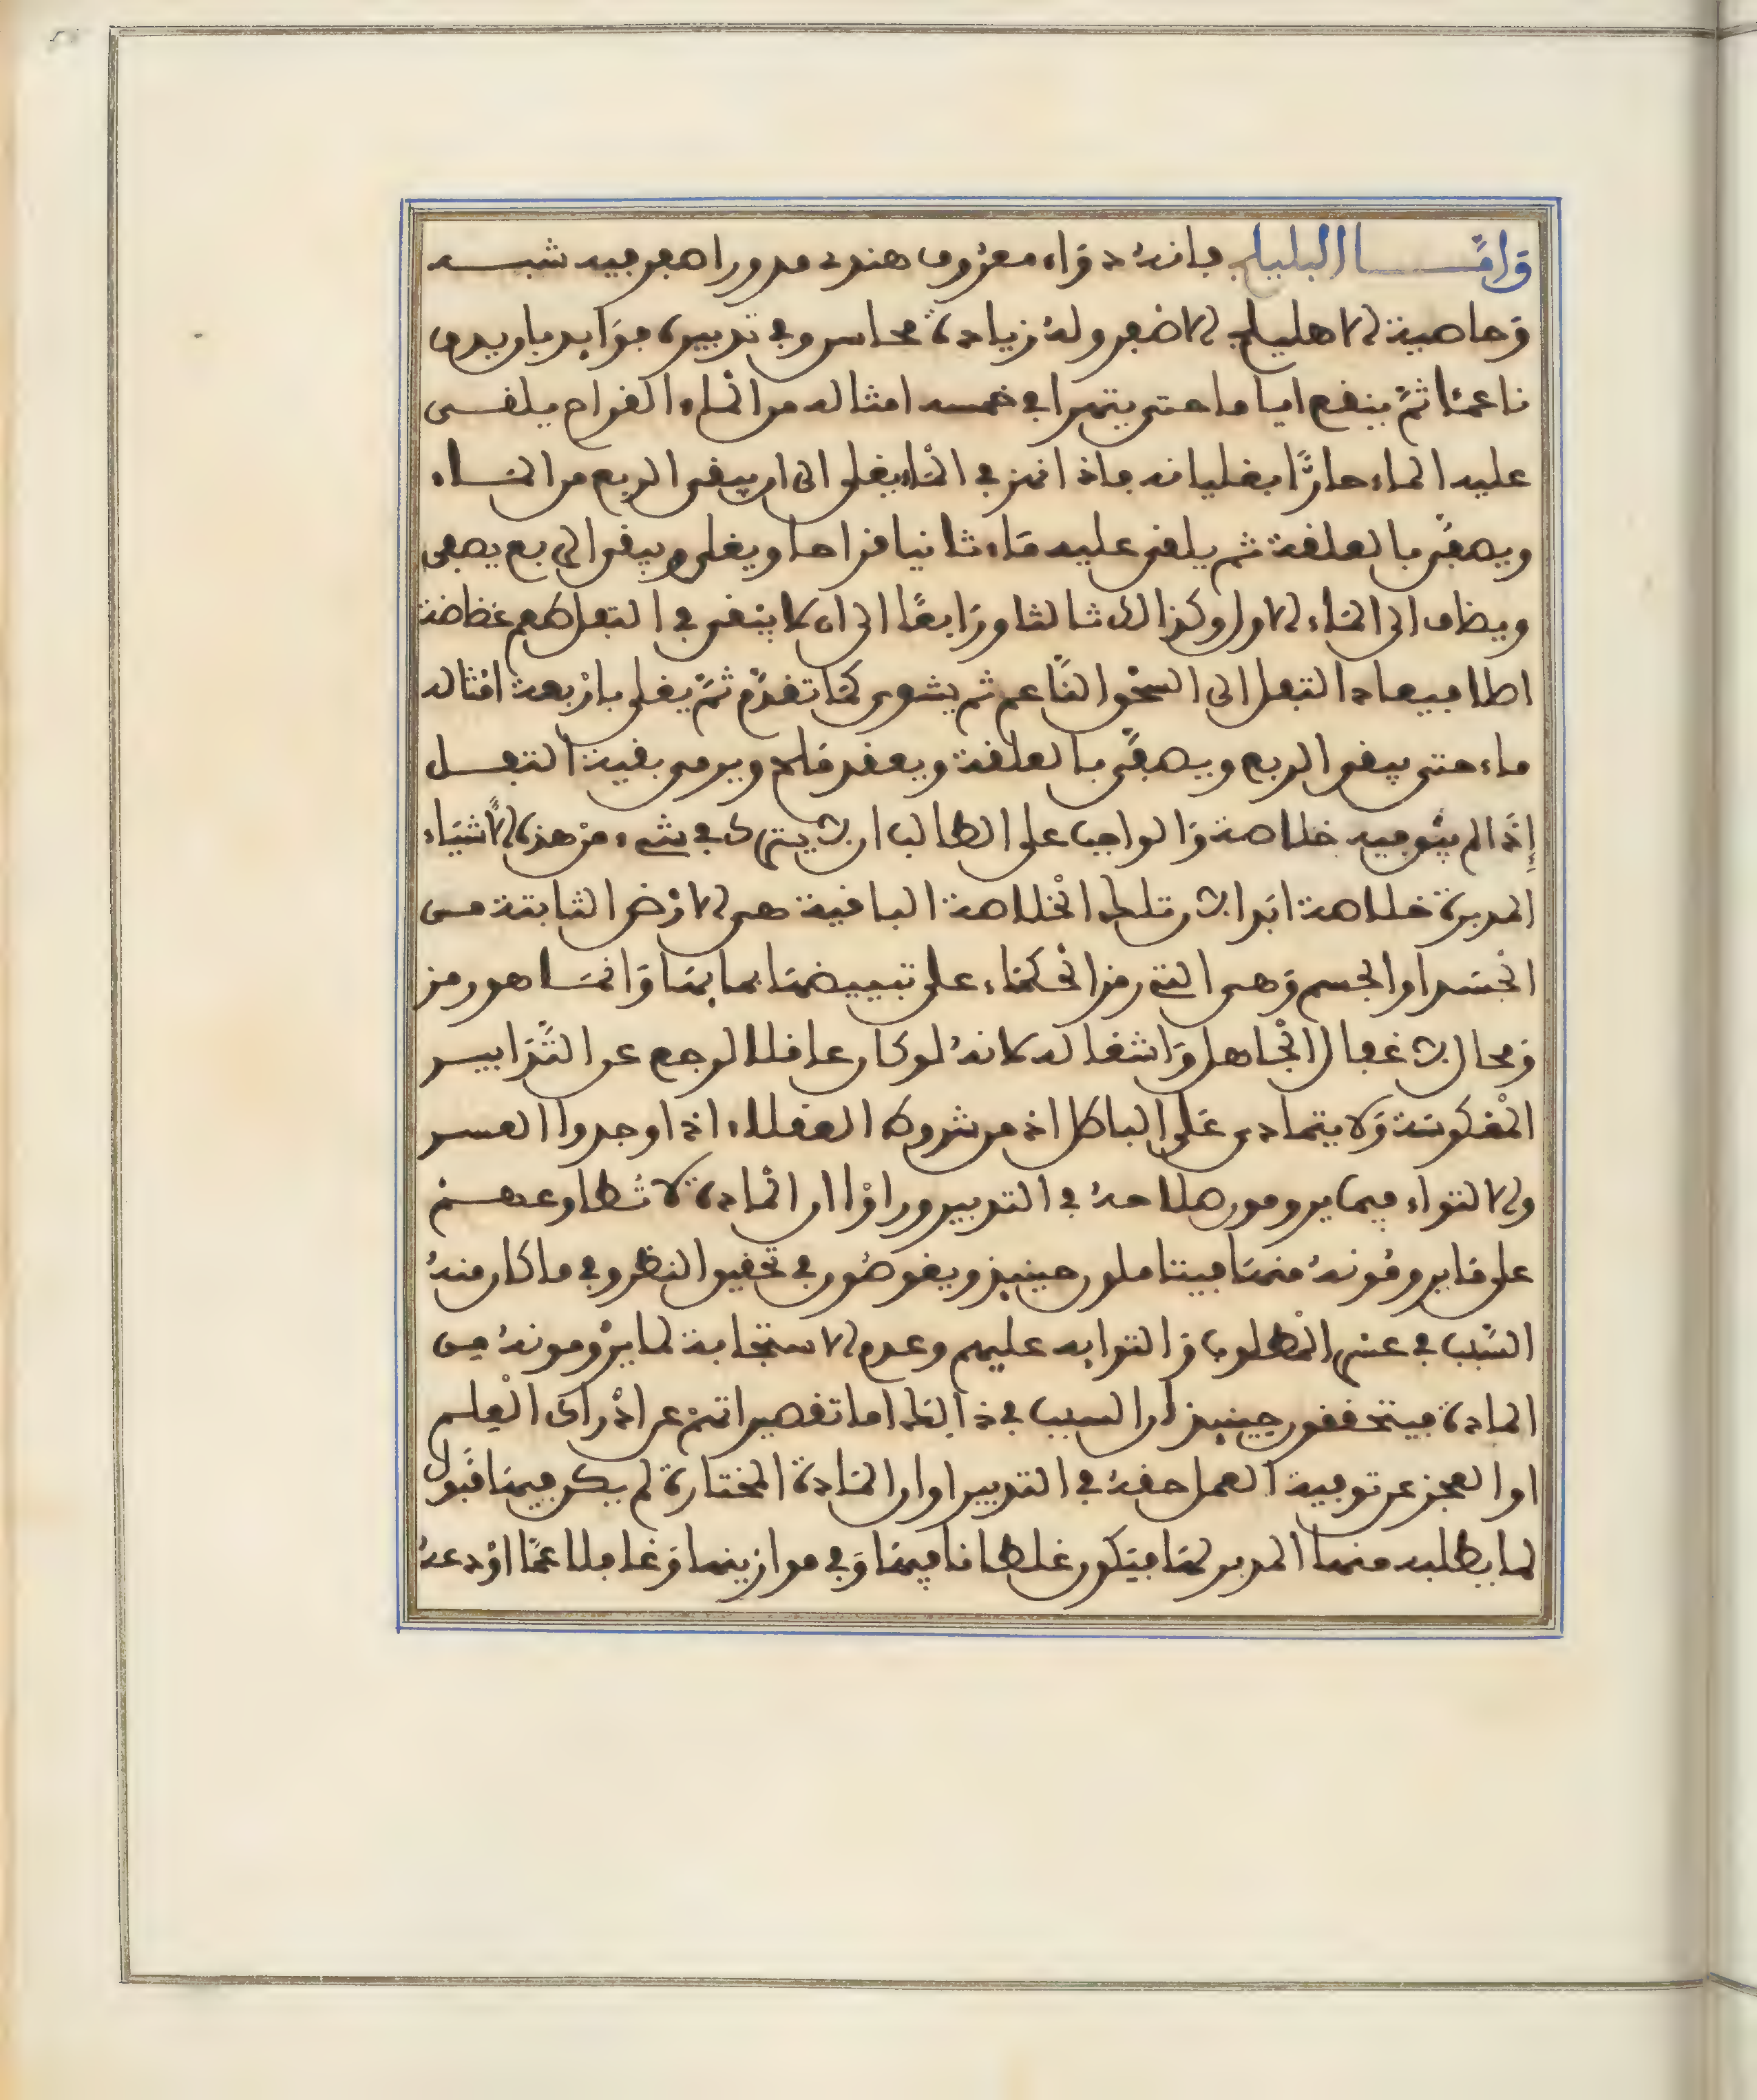 وامــــا البليلج فانه دواء معروف هندي مدور اصفر فيه شبــه
وخاصية الاهليلج الاصفر وله زيادة محاسن وفي تدبيره فوايد بان يدق
ناعما ثم ينقع اياما حتى يتهرا في خمسه امثاله من الماء القراح يلقــى
عليه الماء حارا بغليانه فاذا انهز في الماء يغلى الى ان يبقى الربع من المــاء
ويصفى بالعلقة ثم يلقى عليه ماء ثانيا قراحا ويغلى ويبقى الربع يصفى
ويضاف الى الماء الاول وكذالك ثالثا ورابعا الى ان لا يبقى في الثفل طعم غضاضة
اصلا فيعاد الثفل الى السحق الناعم ثم يشوى كما تقدم ثم يغلى باربعة امثاله
ماء حتى يبقى الربع ويصفى بالعلقة ويعقد ملح ويرمى بقية الثفــل
إذا لم يبق فيه خلاصة والواجب على الطالب ان لا يترك في شيء من هذه الاشياء
المدبرة خلاصة ابدا لان تلك الخلاصة الباقية هي الارض الثابتة مــن
الجسد او الجسم وهي التي رمز الحكماء على تبييضها بمابها وانمــا هو رمز
ومحال لاغفال الجاهل واشغاله لانه لو كان عاقلا لرجع عن التدابيــر
المعكوسة ولا يتمادى على الباطل اذ من شروط العقلاء اذا وجدوا العســر
والالتواء فيما يرومون صلاحه في التدبير وراوا ان المادة لا تطاوعهــم
على ما يرومونه منها فيتاملون حينيذ ويغوضون في تحقيق النظر وفي ما كان منه
السبب في عسر المطلوب والتوايه عليهم وعدم الاستجابة لما يرومونه مــن
المادة فيتحققون حينيذ ان السبب في ذالك اما تقصيراتهم عن ادراك العلــم
او العجز عن توفية العمل حقه في التدبير او ان المادة المختارة لم يكن فيها قبول
لما يطلبه منها المدبر لها فيكون غلطانا فيها وفي موازينها وغافلا عما اودعه